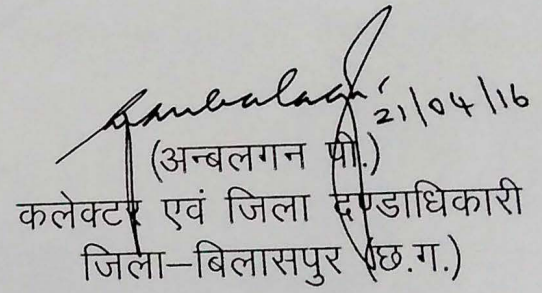 21/04/16
(अन्बलगन पी.)
कलेक्टर एवं जिला दण्डाधिकारी
जिला–बिलासपुर (छ.ग.)